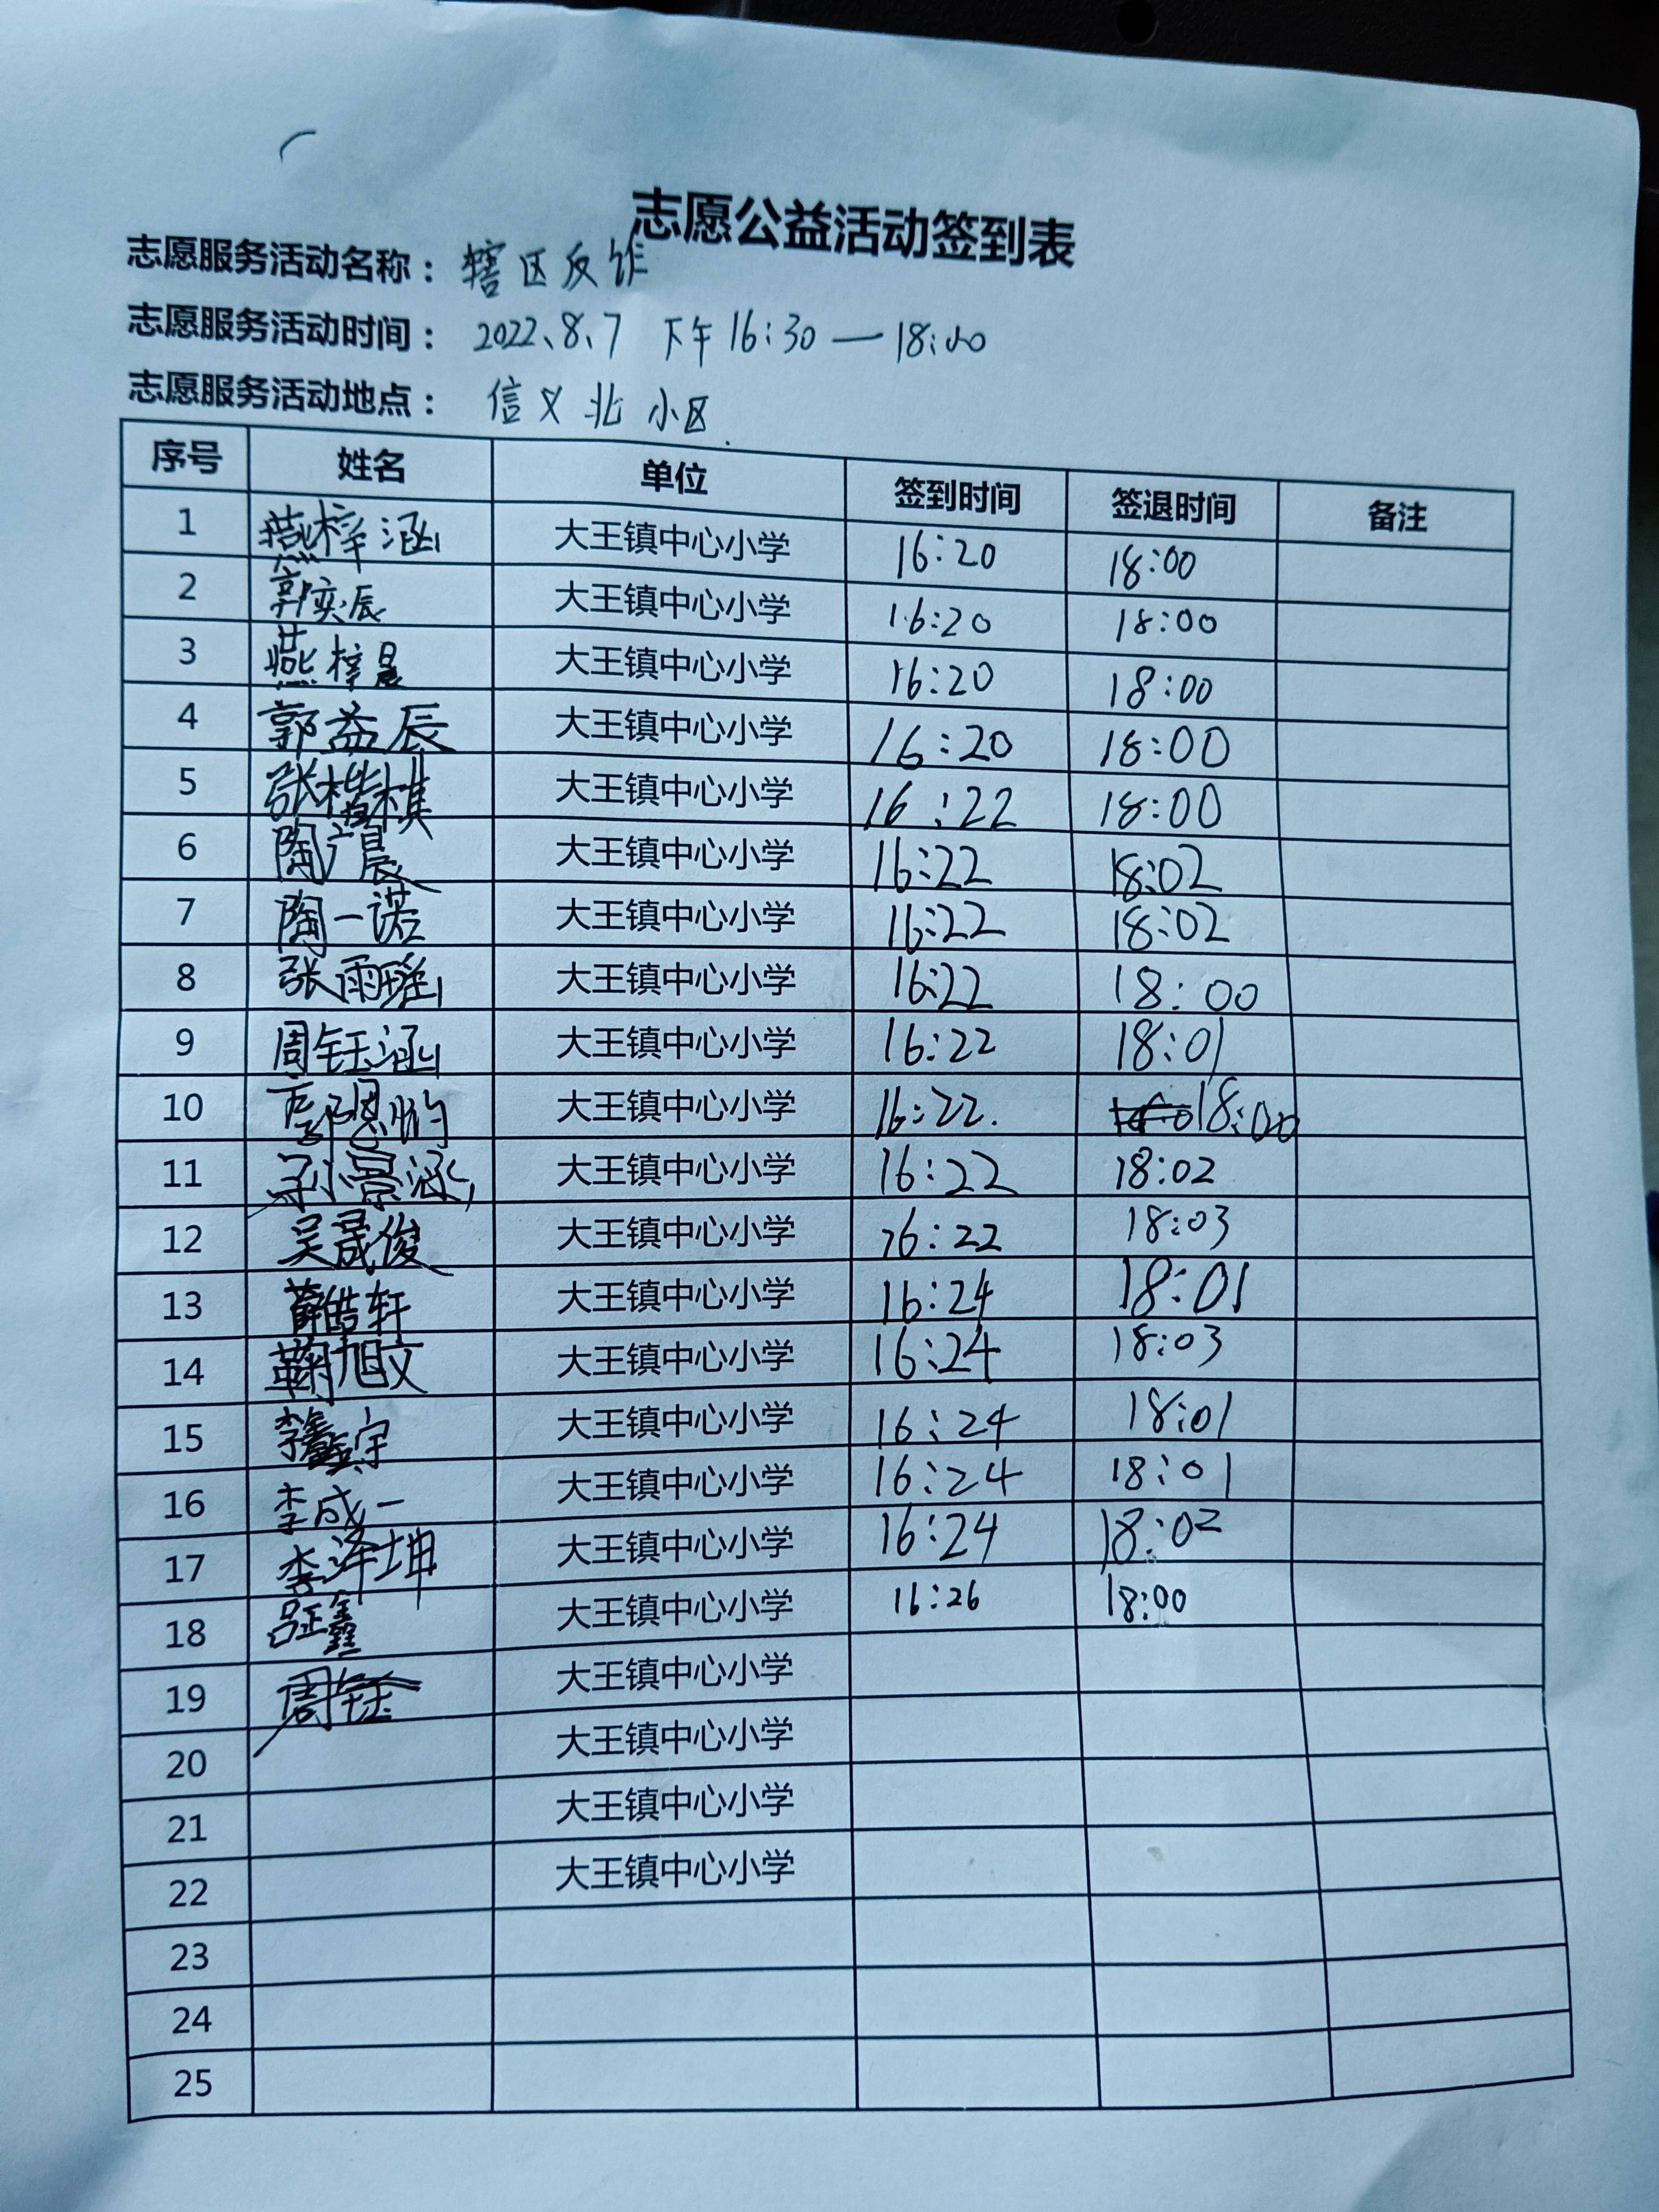 志愿公益活动签到表
志愿服务活动名称： 辖区反诈
志愿服务活动时间： 2022、8、7 下午 16:30 — 18:00
志愿服务活动地点： 信义北小区
序号 姓名 单位 签到时间 签退时间 备注
1 燕梓涵 大王镇中心小学 16:20 18:00
2 郭奕辰 大王镇中心小学 16:20 18:00
3 燕梓晨 大王镇中心小学 16:20 18:00
4 郭益辰 大王镇中心小学 16:20 18:00
5 张楷棋 大王镇中心小学 16:22 18:00
6 陶广晨 大王镇中心小学 16:22 18:02
7 陶一诺 大王镇中心小学 16:22 18:02
8 张雨瑶 大王镇中心小学 16:22 18:00
9 周钰涵 大王镇中心小学 16:22 18:01
10 大王镇中心小学 16:22. 18:00
11 大王镇中心小学 16:22 18:02
12 吴晟俊 大王镇中心小学 16:22 18:03
13 薛皓轩 大王镇中心小学 16:24 18:01
14 鞠旭文 大王镇中心小学 16:24 18:03
15 大王镇中心小学 16:24 18:01
16 李成一 大王镇中心小学 16:24 18:01
17 李泽坤 大王镇中心小学 16:24 18:02
18 吕正鑫 大王镇中心小学 16:26 18:00
19 周钰 大王镇中心小学
20 大王镇中心小学
21 大王镇中心小学
22 大王镇中心小学
23
24
25